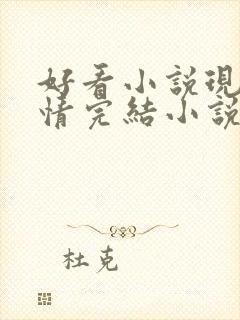 好看小說現
情完結小說
杜克